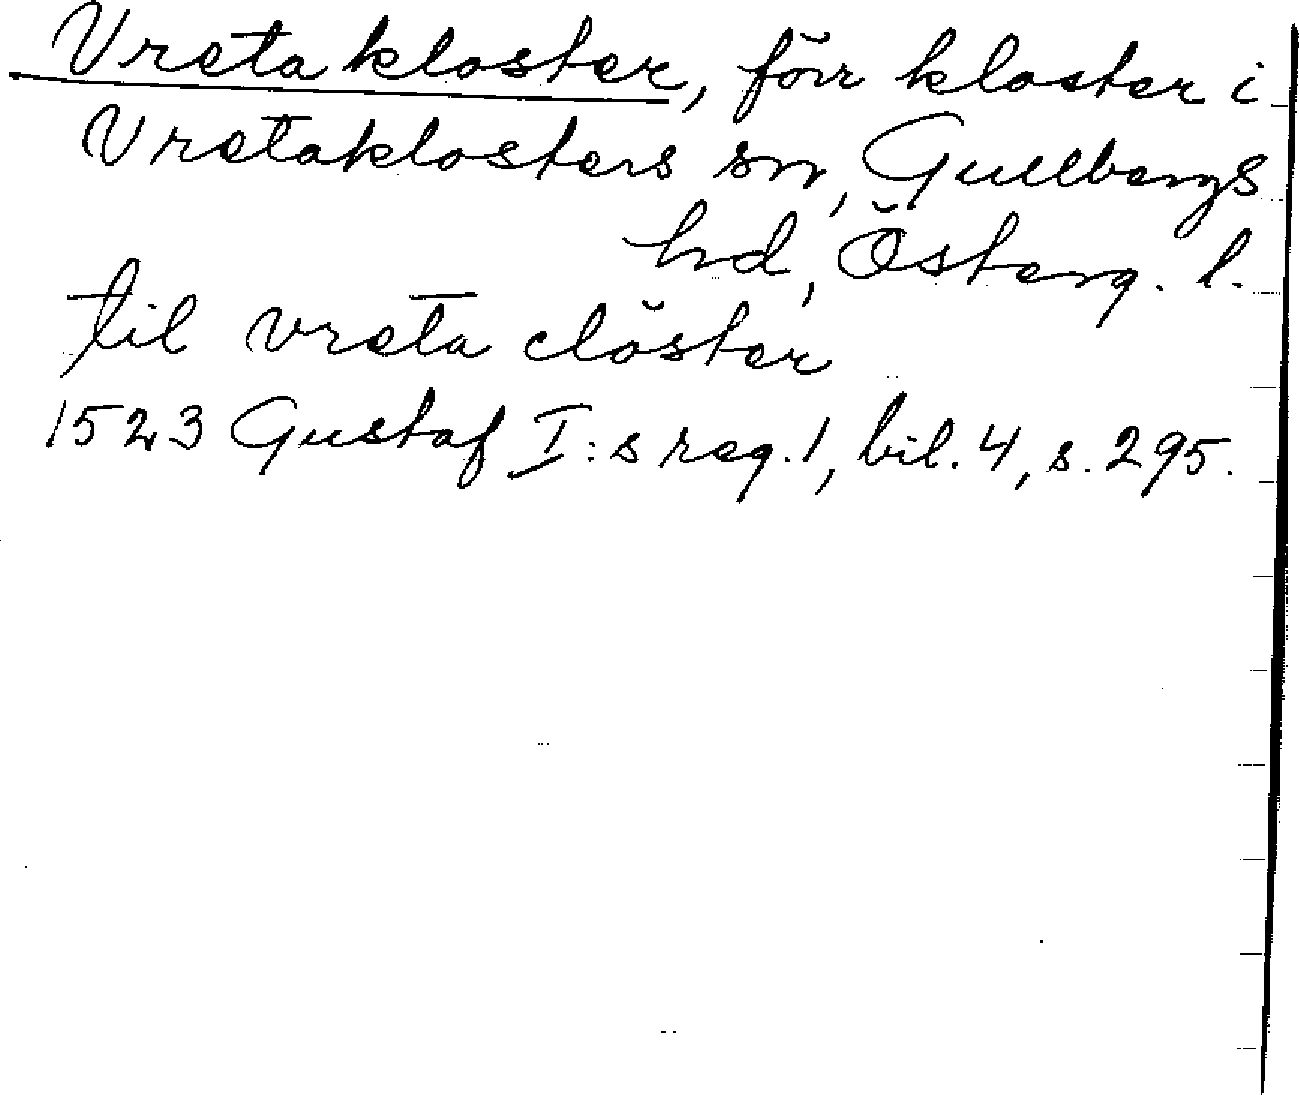 Vreta kloster, förr kloster i
Vretaklosters sn, Gullbergs
hd, Österg. l.
til vreta clöster
1523 Gustaf I:s reg. 1, bil. 4, s. 295.